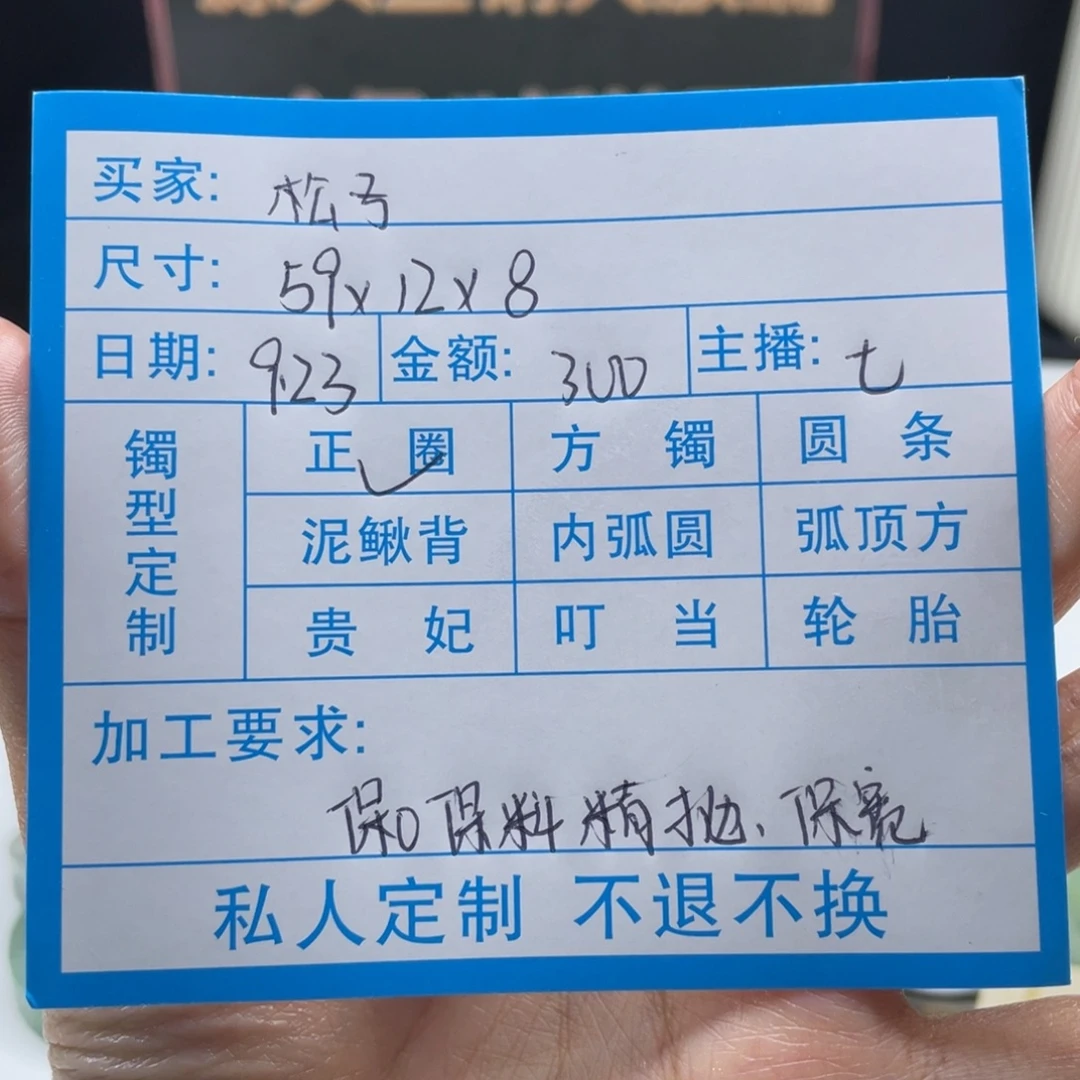 买家: 松子
尺寸: 59x12x8
日期: 9.23 金额: 300 主播: 七
镯型定制
正圈 方镯 圆条
泥鳅背 内弧圆 弧顶方
贵妃 叮当 轮胎
加工要求:
保口保料精抛、保宽
私人定制 不退不换